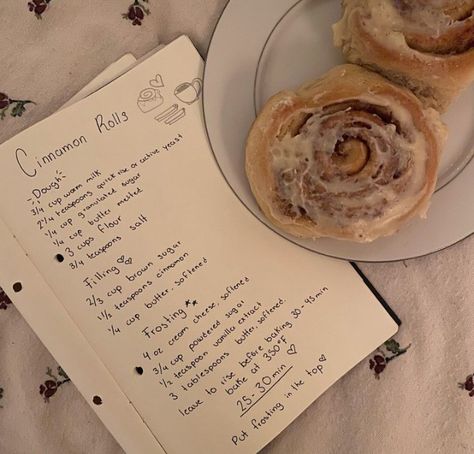 Cinnamon Rolls
Dough
3/4 cup warm milk
2 1/4 teaspoons quick rise or active yeast
1/4 cup granulated sugar
1/4 cup butter melted
3 cups flour
3/4 teaspoons salt
Filling
2/3 cup brown sugar
1 1/2 teaspoons cinnamon
1/4 cup butter, softened
Frosting
4 oz cream cheese, softened
3/4 cup powdered sugar
1/2 teaspoon vanilla extract
3 tablespoons butter, softened.
leave to rise before baking 30-45min
bake at 350°F
25-30min
Put frosting in the top